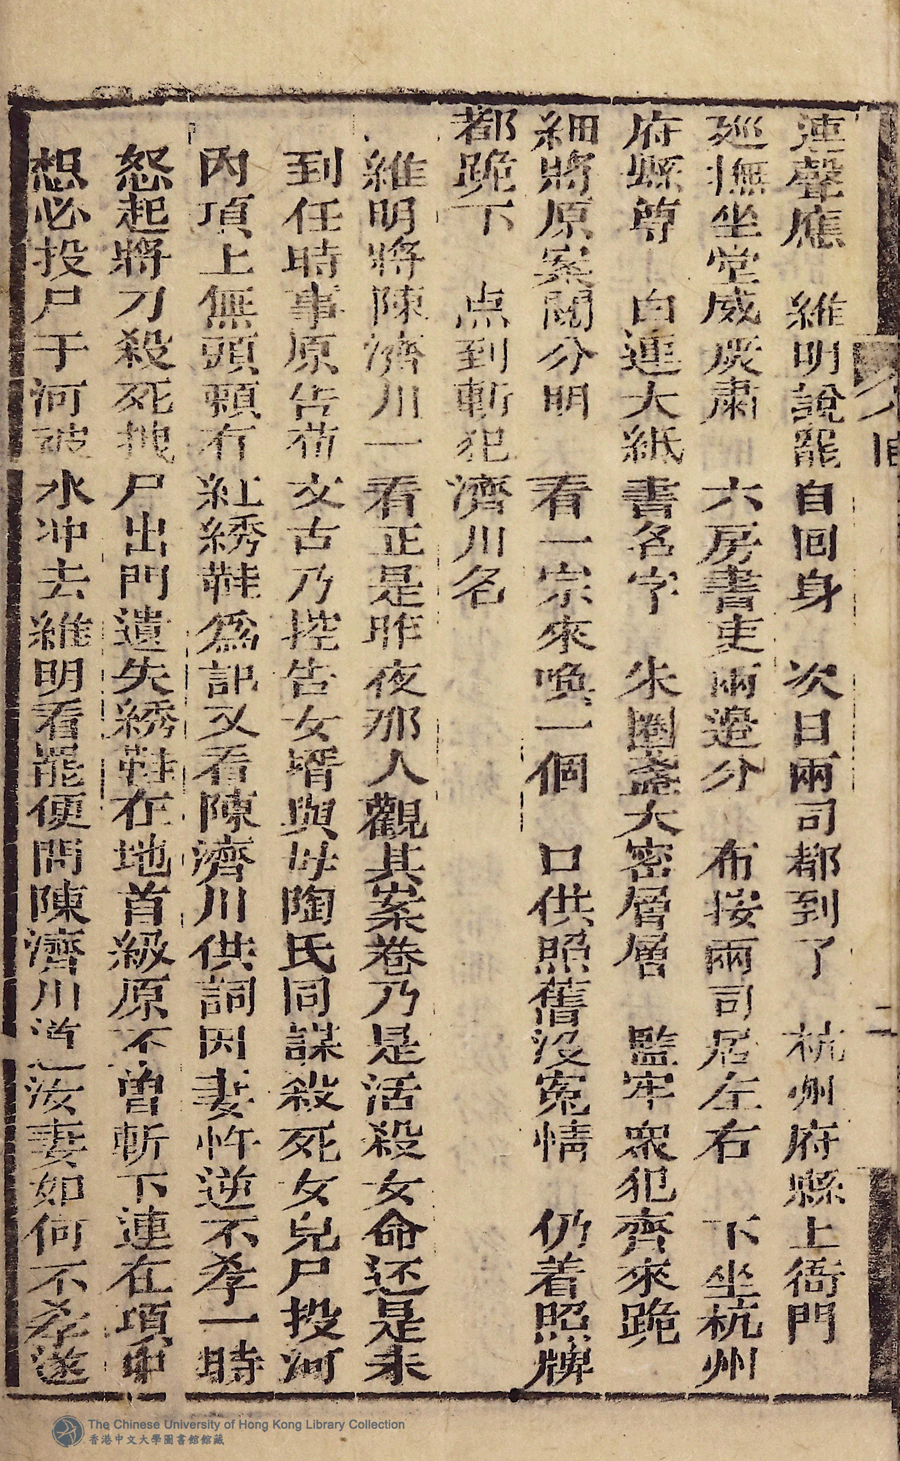 連聲應　維明說罷自回身　次日兩司都到了　杭州府縣上衙門
廵撫坐堂威炭肅　六房書吏兩邉分　布按兩司居左右　下坐杭州
府縣尊　白連大紙書名字　朱圈盞大密層層　監牢衆犯齊來跪
細將原案閱分明　看一宗來喚一個　口供照舊没寃情　仍着照牌
都跪下　点到斬犯濟川名
維明將陳濟川一看正是昨夜那人觀其案卷乃是活殺女命还是未
到任時事原告苟文古乃控告女壻與母陶氏同謀殺死女兒尸投河
內項上無頭頸有紅綉鞋爲記又看陳濟川供詞因妻忤逆不孝一時
怒起將刀殺死拽尸出門遺失綉鞋在地首級原不曾斬下連在項中
想必投尸于河被水冲去維明看罷便問陳濟川道汝妻如何不孝遂
二
The Chinese University of Hong Kong Library Collection
香港中文大學圖書館館藏